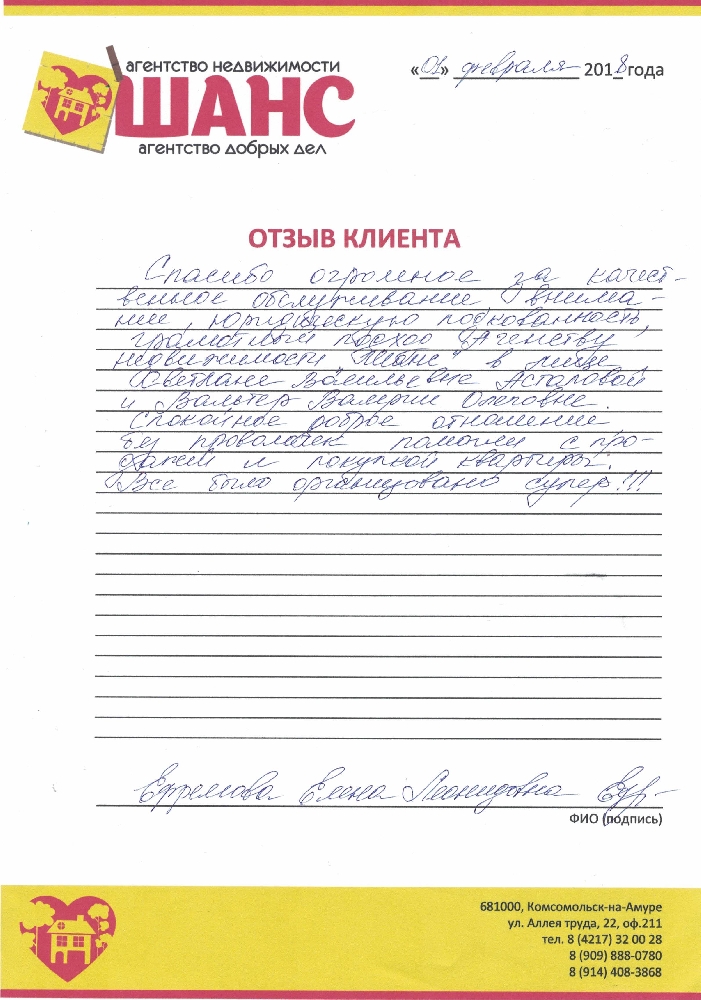 агентство недвижимости
«01» февраля 2018 года
ШАНС
агентство добрых дел
ОТЗЫВ КЛИЕНТА
Спасибо огромное за качест-
венное обслуживание, внима-
ние, юридическую подкованность,
грамотный подход Агенству
недвижимости "Шанс" в лице
Светлане Васильевне Астаповой
и Вальтер Валерии Олеговне.
Спокойное доброе отношение
без проволочек помогли с про-
дажей и покупкой квартиры.
Все было организовано супер!!!
Ефремова Елена Леонидовна
ФИО (подпись)
681000, Комсомольск-на-Амуре
ул. Аллея труда, 22, оф.211
тел. 8 (4217) 32 00 28
8 (909) 888-0780
8 (914) 408-3868